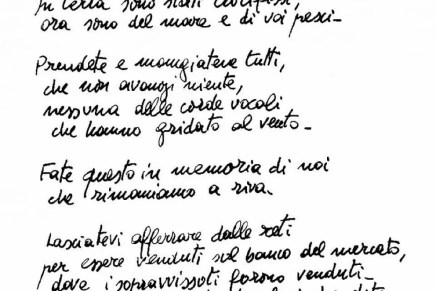 In terra sono stati crocifissi,
ora sono del mare e di voi pesci_
Prendete e mangiatene tutti,
che non avanzi niente,
nessuna delle corde vocali
che hanno gridato al vento_
Fate questo in memoria di noi
che rimaniamo a riva_
Lasciatevi afferrare dalle reti
per essere venduti sul banco del mercato,
dove i sopravvissuti furono venduti_